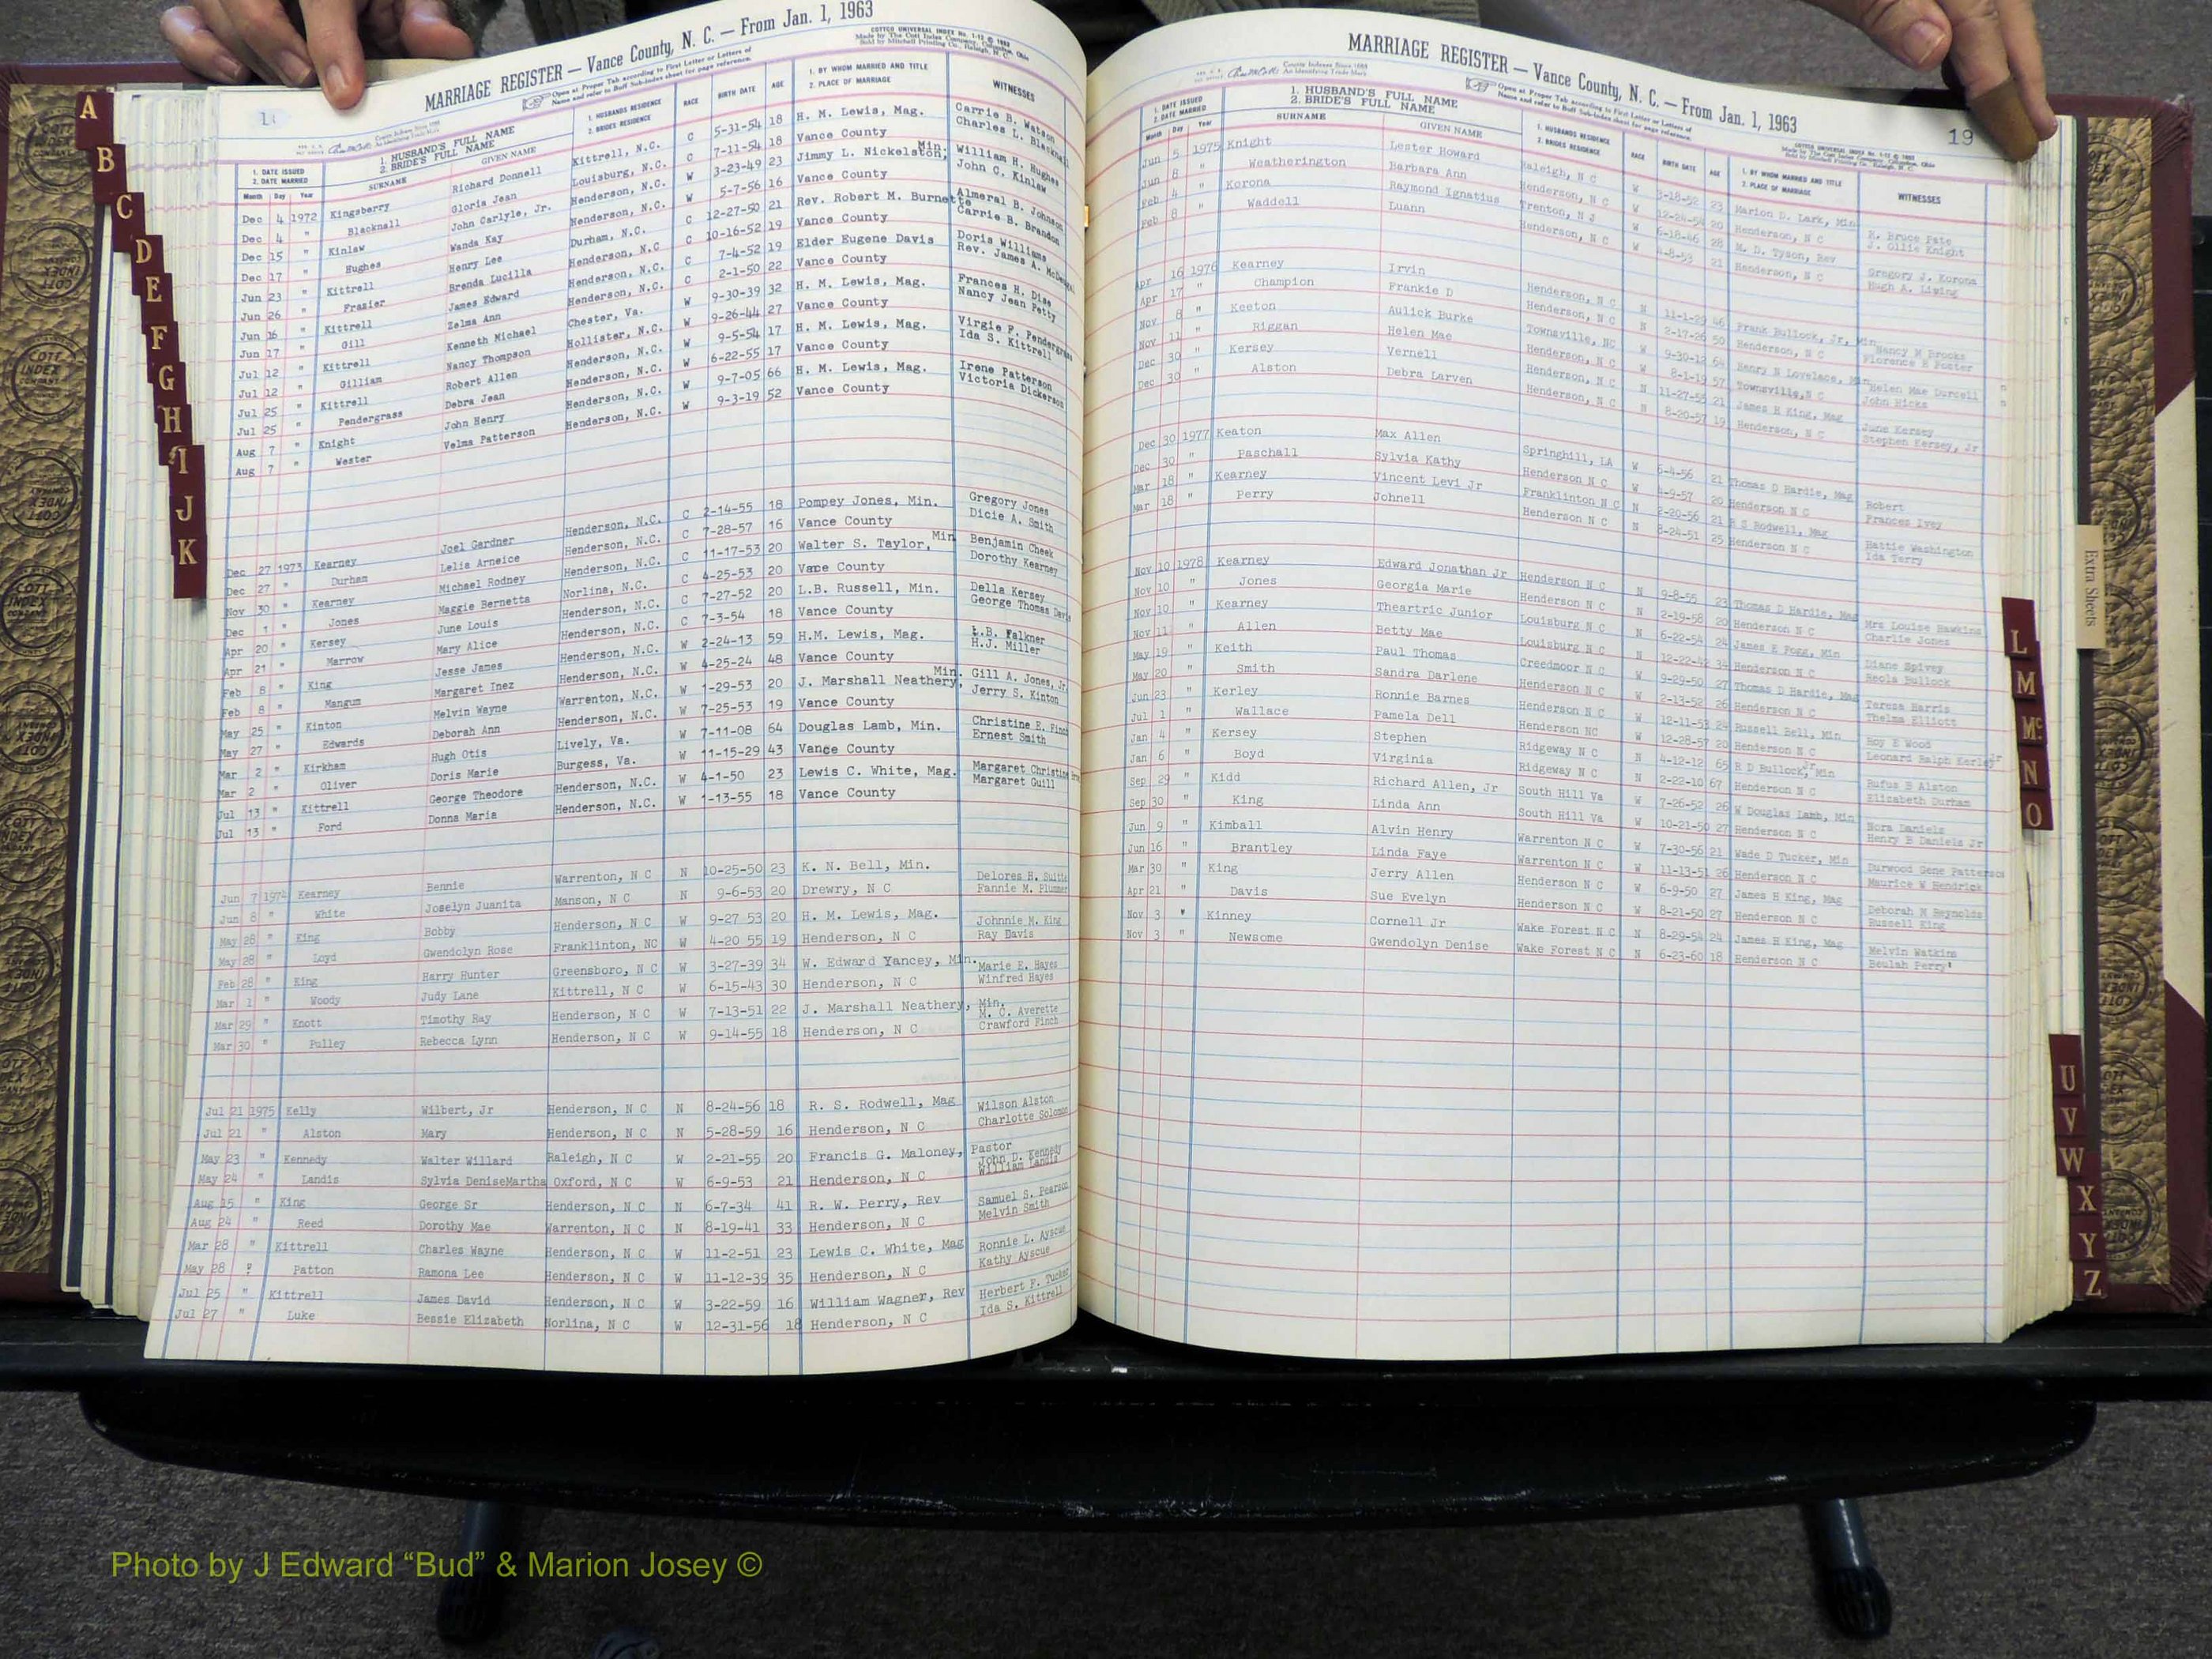 MARRIAGE REGISTER — Vance County, N. C. — From Jan. 1, 1963
COTTCO UNIVERSAL INDEX No. 1-12 © 1963
Made by The Cott Index Company, Columbus, Ohio
Sold by Mitchell Printing Co., Raleigh, N. C.
Open at Proper Tab according to First Letter or Letters of
Name and refer to Buff Sub-index sheet for page reference.
1. DATE ISSUED 2. DATE MARRIED 1. HUSBAND'S FULL NAME 2. BRIDE'S FULL NAME 1. HUSBANDS RESIDENCE 2. BRIDES RESIDENCE RACE BIRTH DATE AGE 1. BY WHOM MARRIED AND TITLE 2. PLACE OF MARRIAGE WITNESSES
Month Day Year SURNAME GIVEN NAME
Dec 4 1972 Kingsberry Richard Donnell Kittrell, N.C. C 5-31-54 18 H. M. Lewis, Mag. Carrie B. Watson
Dec 4 " Blacknall Gloria Jean Louisburg, N.C. C 7-11-54 18 Vance County Charles L. Blacknall
Dec 15 " Kinlaw John Carlyle, Jr. Henderson, N.C. W 3-23-49 23 Jimmy L. Nickelston, Min. William H. Hughes
Dec 17 " Hughes Wanda Kay Henderson, N.C. W 5-7-56 16 Vance County John C. Kinlaw
Jun 23 " Kittrell Henry Lee Durham, N.C. C 12-27-50 21 Rev. Robert M. Burnette Almeral B. Johnson
Jun 26 " Frazier Brenda Lucilla Henderson, N.C C 10-16-52 19 Vance County Carrie B. Brandon
Jun 16 " Kittrell James Edward Henderson, N.C. C 7-4-52 19 Elder Eugene Davis Doris Williams
Jun 17 " Gill Zelma Ann Henderson, N.C. C 2-1-50 22 Vance County Rev. James A.
Jul 12 " Kittrell Kenneth Michael Chester, Va. W 9-30-39 32 H. M. Lewis, Mag. Frances H. Dise
Jul 12 " Gilliam Nancy Thompson Hollister, N.C. W 9-26-44 27 Vance County Nancy Jean Petty
Jul 25 " Kittrell Robert Allen Henderson, N.C. W 9-5-54 17 H. M. Lewis, Mag. Virgie F. Pendergrass
Jul 25 " Pendergrass Debra Jean Henderson, N.C. W 6-22-55 17 Vance County Ida S. Kittrell
Aug 7 " Knight John Henry Henderson, N.C. W 9-7-05 66 H. M. Lewis, Mag. Irene Patterson
Aug 7 " Wester Velma Patterson Henderson, N.C. W 9-3-19 52 Vance County Victoria Dickerson
Dec 27 1973 Kearney Joel Gardner Henderson, N.C. C 2-14-55 18 Pompey Jones, Min. Gregory Jones
Dec 27 " Durham Lelia Arneice Henderson, N.C. C 7-28-57 16 Vance County Dicie A. Smith
Nov 30 " Kearney Michael Rodney Henderson, N.C. C 11-17-53 20 Walter S. Taylor, Min Benjamin Cheek
Dec 1 " Jones Maggie Bernetta Norlina, N.C. C 4-25-53 20 Vance County Dorothy Kearney
Apr 20 " Kersey June Louis Henderson, N.C. C 7-27-52 20 L.B. Russell, Min. Della Kersey
Apr 21 " Marrow Mary Alice Henderson, N.C. C 7-3-54 18 Vance County George Thomas Davis
Feb 8 " King Jesse James Henderson, N.C. W 2-24-13 59 H.M. Lewis, Mag. L.B. Falkner
Feb 8 " Mangum Margaret Inez Henderson, N.C. W 4-25-24 48 Vance County H.J. Miller
May 25 " Kinton Melvin Wayne Warrenton, N.C. W 1-29-53 20 J. Marshall Neathery, Min. Gill A. Jones, Jr.
May 27 " Edwards Deborah Ann Henderson, N.C. W 7-25-53 19 Vance County Jerry S. Kinton
Mar 2 " Kirkham Hugh Otis Lively, Va. W 7-11-08 64 Douglas Lamb, Min. Christine E. Finch
Mar 2 " Oliver Doris Marie Burgess, Va. W 11-15-29 43 Vance County Ernest Smith
Jul 13 " Kittrell George Theodore Henderson, N.C. W 4-1-50 23 Lewis C. White, Mag. Margaret Christine
Jul 13 " Ford Donna Maria Henderson, N.C. W 1-13-55 18 Vance County Margaret Guill
Jun 7 1974 Kearney Bennie Warrenton, N C N 10-25-50 23 K. N. Bell, Min. Delores H. Suitte
Jun 8 " White Joselyn Juanita Manson, N C N 9-6-53 20 Drewry, N C Fannie M. Plummer
May 28 " King Bobby Henderson, N C W 9-27 53 20 H. M. Lewis, Mag. Johnnie M. King
May 28 " Loyd Gwendolyn Rose Franklinton, NC W 4-20 55 19 Henderson, N C Ray Davis
Feb 28 " King Harry Hunter Greensboro, N C W 3-27-39 34 W. Edward Yancey, Min. Marie E. Hayes
Mar 1 " Woody Judy Lane Kittrell, N C W 6-15-43 30 Henderson, N C Winfred Hayes
Mar 29 " Knott Timothy Ray Henderson, N C W 7-13-51 22 J. Marshall Neathery, Min. M. C. Averette
Mar 30 " Pulley Rebecca Lynn Henderson, N C W 9-14-55 18 Henderson, N C Crawford Finch
Jul 21 1975 Kelly Wilbert, Jr Henderson, N C N 8-24-56 18 R. S. Rodwell, Mag Wilson Alston
Jul 21 " Alston Mary Henderson, N C N 5-28-59 16 Henderson, N C Charlotte Solomon
May 23 " Kennedy Walter Willard Raleigh, N C W 2-21-55 20 Francis G. Maloney, Pastor John D. Kennedy
May 24 " Landis Sylvia DeniseMartha Oxford, N C W 6-9-53 21 Henderson, N C William Landis
Aug 15 " King George Sr Henderson, N C N 6-7-34 41 R. W. Perry, Rev Samuel S. Pearson
Aug 24 " Reed Dorothy Mae Warrenton, N C N 8-19-41 33 Henderson, N C Melvin Smith
Mar 28 " Kittrell Charles Wayne Henderson, N C W 11-2-51 23 Lewis C. White, Mag Ronnie L. Ayscue
May 28 " Patton Ramona Lee Henderson, N C W 11-12-39 35 Henderson, N C Kathy Ayscue
Jul 25 " Kittrell James David Henderson, N C W 3-22-59 16 William Wagner, Rev Herbert F. Tucker
Jul 27 " Luke Bessie Elizabeth Norlina, N C W 12-31-56 18 Henderson, N C Ida S. Kittrell
MARRIAGE REGISTER — Vance County, N. C. — From Jan. 1, 1963
19
Open at Proper Tab according to First Letter or Letters of
Name and refer to Buff Sub-index sheet for page reference.
1. DATE ISSUED 2. DATE MARRIED 1. HUSBAND'S FULL NAME 2. BRIDE'S FULL NAME 1. HUSBANDS RESIDENCE 2. BRIDES RESIDENCE RACE BIRTH DATE AGE 1. BY WHOM MARRIED AND TITLE 2. PLACE OF MARRIAGE WITNESSES
Month Day Year SURNAME GIVEN NAME
Jun 5 1975 Knight Lester Howard Raleigh, N C W 3-18-52 23 Marion D. Lark, Min R. Bruce Pate
Jun 8 " Weatherington Barbara Ann Henderson, N C W 12-24-54 20 Henderson, N C J. Ollie Knight
Feb 4 " Korona Raymond Ignatius Trenton, N J W 6-18-46 28 M. D. Tyson, Rev Gregory J. Korona
Feb 8 " Waddell Luann Henderson, N C W 4-8-53 21 Henderson, N C Hugh A.
Apr 16 1976 Kearney Irvin Henderson, N C N 11-1-29 46 Frank Bullock, Jr, Min Nancy M Brooks
Apr 17 " Champion Frankie D Henderson, N C N 2-17-26 50 Henderson, N C Florence E Foster
Nov 8 " Keeton Aulick Burke Townsville, NC W 9-30-12 64 Henry N Lovelace, Min Helen Mae Durrell
Nov 11 " Riggan Helen Mae Henderson, N C W 8-1-19 57 Townsville, N C John Hicks
Dec 30 " Kersey Vernell Henderson, N C N 11-27-55 21 James H King, Mag June Kersey
Dec 30 " Alston Debra Larven Henderson, N C N 8-20-57 19 Henderson, N C Stephen Kersey, Jr
Dec 30 1977 Keaton Max Allen Springhill, LA W 6-4-56 21 Thomas D Hardie, Mag Robert
Dec 30 " Paschall Sylvia Kathy Henderson N C W 4-9-57 20 Henderson N C Frances Ivey
Mar 18 " Kearney Vincent Levi Jr Franklinton N C N 2-20-56 21 R S Rodwell, Mag Hattie Washington
Mar 18 " Perry Johnell Henderson N C N 8-24-51 25 Henderson N C Ida Terry
Nov 10 1978 Kearney Edward Jonathan Jr Henderson N C N 9-8-55 23 Thomas D Hardie, Mag Mrs Louise Hawkins
Nov 10 " Jones Georgia Marie Henderson N C N 2-19-58 20 Henderson N C Charlie Jones
Nov 10 " Kearney Theartric Junior Louisburg N C N 6-22-54 24 James E Fogg, Min Diane Spivey
Nov 11 " Allen Betty Mae Louisburg N C N 12-22-42 34 Henderson N C Reola Bullock
May 19 " Keith Paul Thomas Creedmoor N C W 9-29-50 27 Thomas D Hardie, Mag Teresa Harris
May 20 " Smith Sandra Darlene Henderson N C W 2-13-52 26 Henderson N C Thelma Elliott
Jun 23 " Kerley Ronnie Barnes Henderson N C W 12-11-53 24 Russell Bell, Min Roy E Wood
Jul 1 " Wallace Pamela Dell Henderson NC W 12-28-57 20 Henderson N C Leonard Ralph Kerley Jr
Jan 4 " Kersey Stephen Ridgeway N C N 4-12-12 65 R D Bullock, Jr, Min Rufus B Alston
Jan 6 " Boyd Virginia Ridgeway N C N 2-22-10 67 Henderson N C Elizabeth Durham
Sep 29 " Kidd Richard Allen, Jr South Hill Va W 7-26-52 26 W Douglas Lamb, Min Nora Daniels
Sep 30 " King Linda Ann South Hill Va W 10-21-50 27 Henderson N C Henry B Daniels Jr
Jun 9 " Kimball Alvin Henry Warrenton N C W 7-30-56 21 Wade D Tucker, Min Durwood Gene Patterson
Jun 16 " Brantley Linda Faye Warrenton N C W 11-13-51 26 Henderson N C Maurice W Hendrick
Mar 30 " King Jerry Allen Henderson N C W 6-9-50 27 James H King, Mag Deborah N Reynolds
Apr 21 " Davis Sue Evelyn Henderson N C W 8-21-50 27 Henderson N C Russell King
Nov 3 " Kinney Cornell Jr Wake Forest N C N 8-29-54 24 James H King, Mag Melvin Watkins
Nov 3 " Newsome Gwendolyn Denise Wake Forest N C N 6-23-60 18 Henderson N C Beulah Perry
A
B
C
D
E
F
G
H
I
J
K
Extra Sheets
L
M
Mc
N
O
U
V
W
X
Y
Z
Photo by J Edward “Bud” & Marion Josey ©